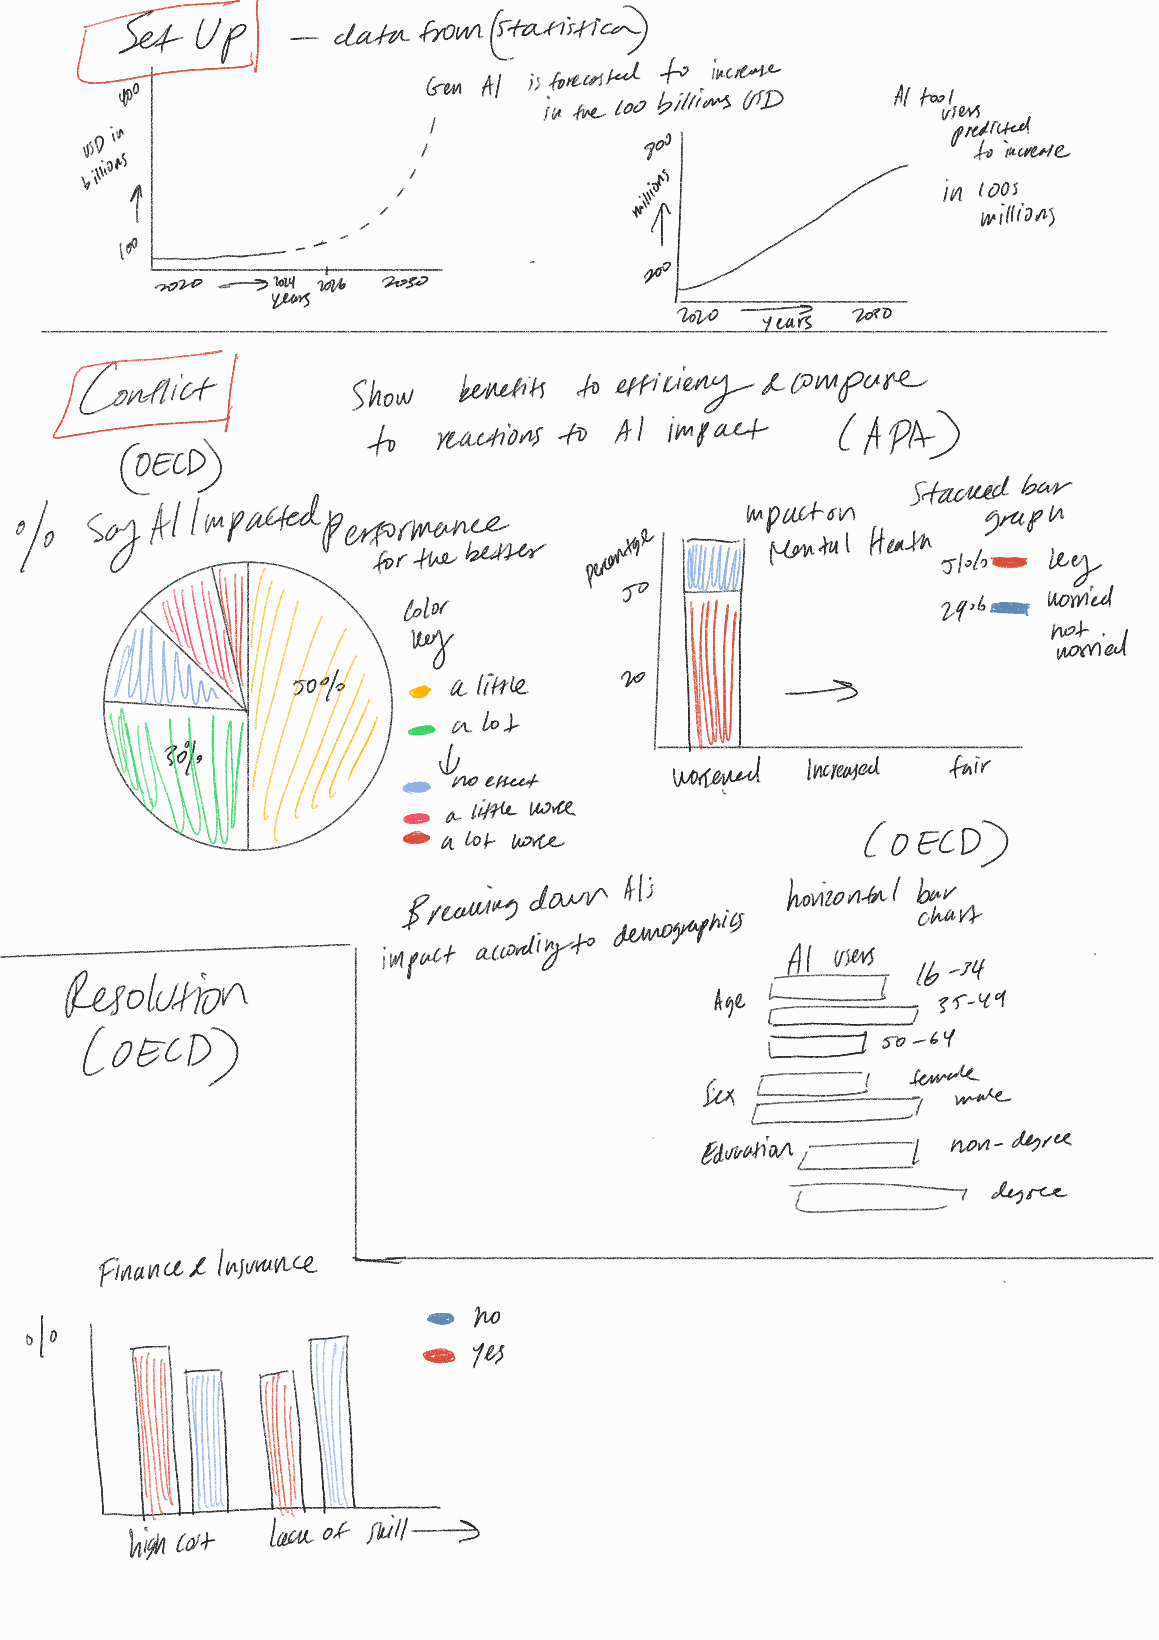 Set Up – data from (statistica)
Gen AI is forecasted to increase
in the 100 billions USD
400
USD in
billions
100
2020
2024
2026
2030
years
AI tool
users
predicted
to increase
in 100s
millions
700
millions
200
2020
years
2030
Conflict
(OECD)
Show benefits to efficieny & compare
to reactions to AI impact (APA)
% Say AI Impacted performance
for the better
50%
30%
color
key
a little
a lot
no effect
a little worse
a lot worse
Impact on
Mental Heath
Stacked bar
graph
percentage
50
20
51% key
29% worried
not
worried
worsened
Increased
fair
(OECD)
Breaking down AI's
impact according to demographics
horizontal bar
chart
AI users
Age
16-34
35-49
50-64
Sex
female
male
Education
non-degree
degree
Resolution
(OECD)
Finance & Insurance
%
no
yes
high cost
lack of skill